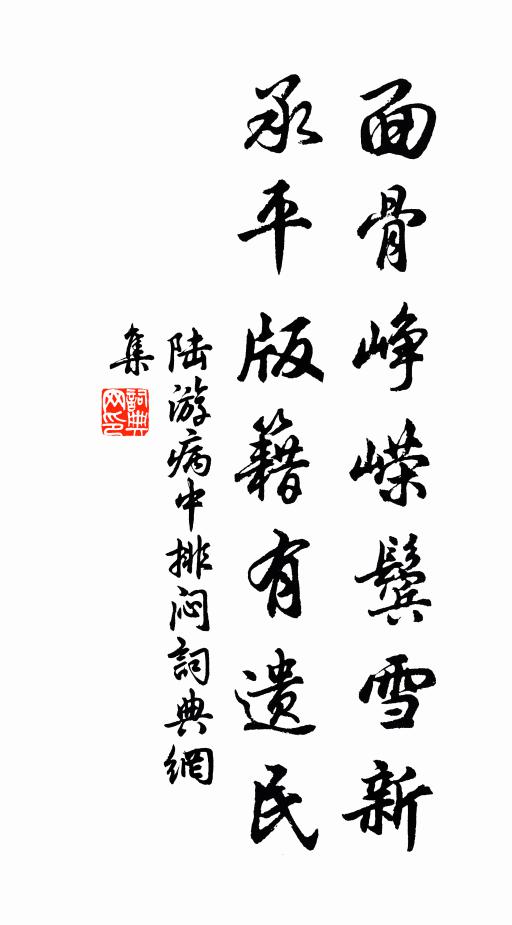 面骨峥嵘鬓雪新
承平版籍有遗民
陆游病中排闷詞典網
集
詞典
网印